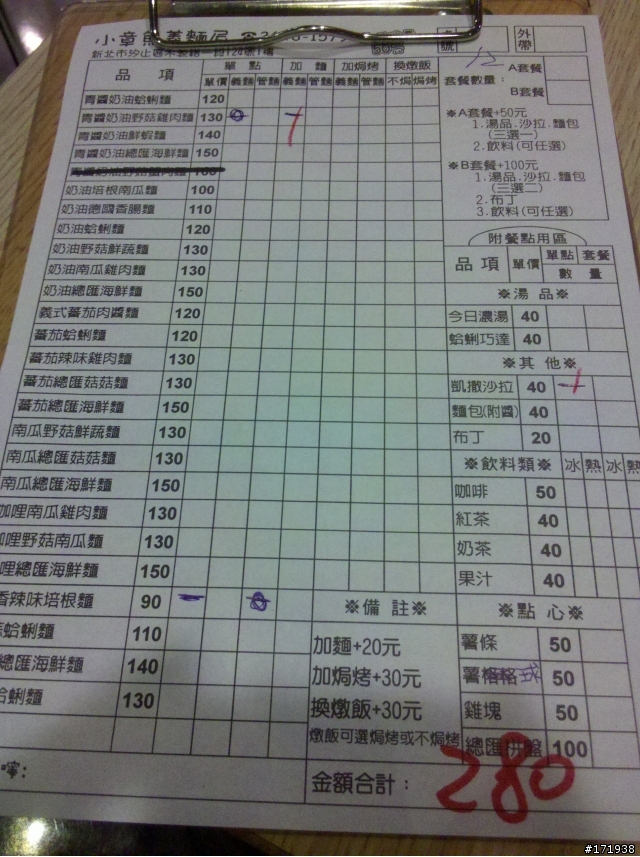 小章熊義麵屋
外帶
新北市汐止區
品項 單點 加麵 加焗烤 換燉飯
單價 義麵 管麵 義麵 管麵 義麵 管麵 不焗 焗烤
青醬奶油蛤蜊麵 120
青醬奶油野菇雞肉麵 130
青醬奶油鮮蝦麵 140
青醬奶油總匯海鮮麵 150
奶油培根南瓜麵 100
奶油德國香腸麵 110
奶油蛤蜊麵 120
奶油野菇鮮蔬麵 130
奶油南瓜雞肉麵 130
奶油總匯海鮮麵 150
義式蕃茄肉醬麵 120
蕃茄蛤蜊麵 120
蕃茄辣味雞肉麵 130
蕃茄總匯菇菇麵 130
蕃茄總匯海鮮麵 150
南瓜野菇鮮蔬麵 130
南瓜總匯菇菇麵 130
南瓜總匯海鮮麵 150
咖哩南瓜雞肉麵 130
咖哩野菇南瓜麵 130
哩總匯海鮮麵 150
香辣味培根麵 90
蛤蜊麵 110
總匯海鮮麵 140
蛤蜊麵 130
嚀:
12
套餐數量:
A套餐
B套餐
※A套餐+50元
1.湯品.沙拉.麵包
(三選一)
2.飲料(可任選)
※B套餐+100元
1.湯品.沙拉.麵包
(三選二)
2.布丁
3.飲料(可任選)
附餐點用區
品項 單價 單點 套餐
數量
※湯品※
今日濃湯 40
蛤蜊巧達 40
※其他※
凱撒沙拉 40
麵包(附醬) 40
布丁 20
※飲料類※ 冰 熱 冰 熱
咖啡 50
紅茶 40
奶茶 40
果汁 40
※點心※
薯條 50
薯格格 式 50
雞塊 50
總匯拼盤 100
※備註※
加麵+20元
加焗烤+30元
換燉飯+30元
燉飯可選焗烤或不焗烤
金額合計:
280
#171938